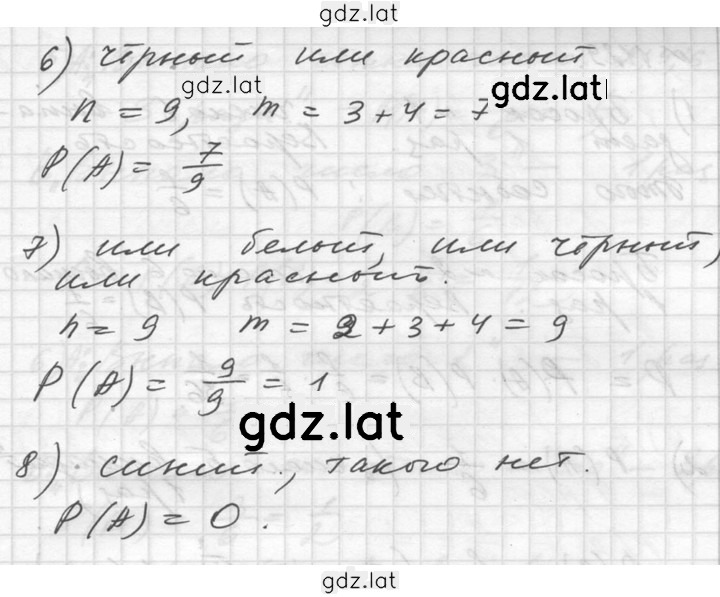 gdz.lat
6) чёрный или красный
gdz.lat
gdz.lat
n = 9, m = 3 + 4 = 7
P(A) = 7/9
7) или белый, или чёрный,
или красный.
n = 9 m = 2 + 3 + 4 = 9
P(A) = 9/9 = 1
gdz.lat
8) синий, такого нет.
P(A) = 0.
gdz.lat